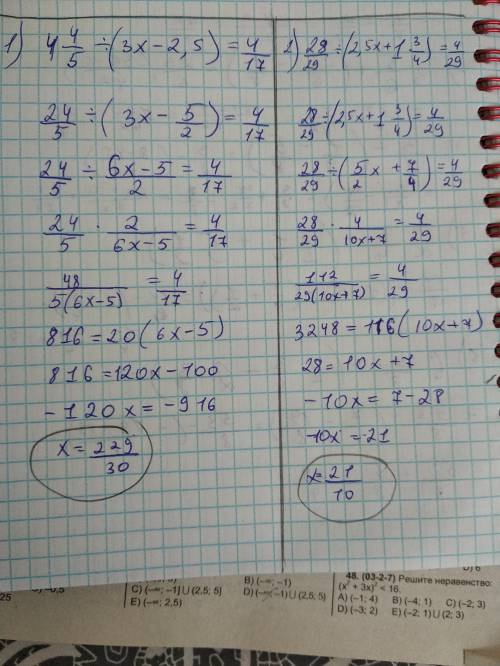 1) 4 4/5 ÷ (3x − 2,5) = 4/17
24/5 ÷ (3x − 5/2) = 4/17
24/5 ÷ (6x−5)/2 = 4/17
24/5 · 2/(6x−5) = 4/17
48/(5(6x−5)) = 4/17
816 = 20(6x−5)
816 = 120x − 100
−120x = −916
x = 229/30
2) 28/29 ÷ (2,5x + 1 3/4) = 4/29
28/29 ÷ (2,5x + 1 3/4) = 4/29
28/29 ÷ (5/2 x + 7/4) = 4/29
28/29 · 4/(10x+7) = 4/29
112/(29(10x+7)) = 4/29
3248 = 116(10x+7)
28 = 10x + 7
−10x = 7−28
−10x = −21
x = 21/10
25
C) (−∞; −1] U (2,5; 5]
E) (−∞; 2,5)
B) (−∞; −1)
D) (−∞; −1) U (2,5; 5]
D) 6
48. (03-2-7) Решите неравенство:
(x² + 3x)² < 16.
A) (−1; 4) B) (−4; 1) C) (−2; 3)
D) (−3; 2) E) (−2; 1) U (2; 3)